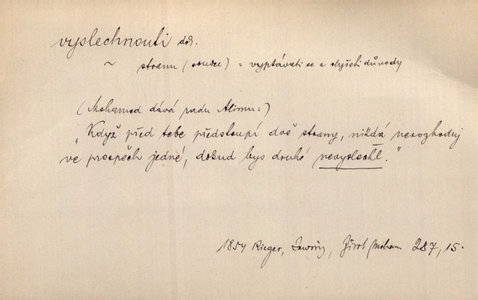 vyslechnouti dok.
~ stranu (soudce) = vyptávati se a slyšeti důvody
(Mohamed dává radu Alimu:)
"Když před tebe předstoupí dvě strany, nikdá nerozhoduj
ve prospěch jedné, dokud bys druhé nevyslechl."
1854 Rieger, Irwing, Život Moham 287,15.